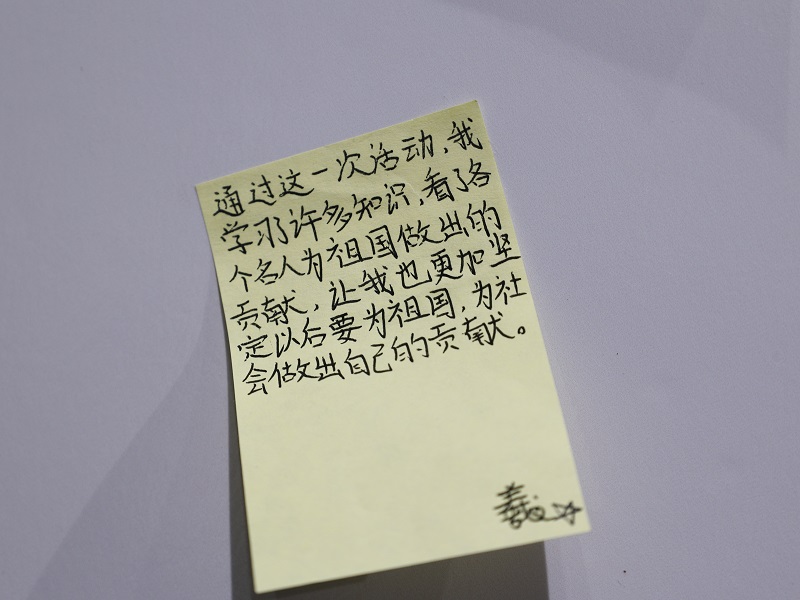 通过这一次活动,我
学习了许多知识,看了各
个名人为祖国做出的
贡献,让我也更加坚
定以后要为祖国,为社
会做出自己的贡献。